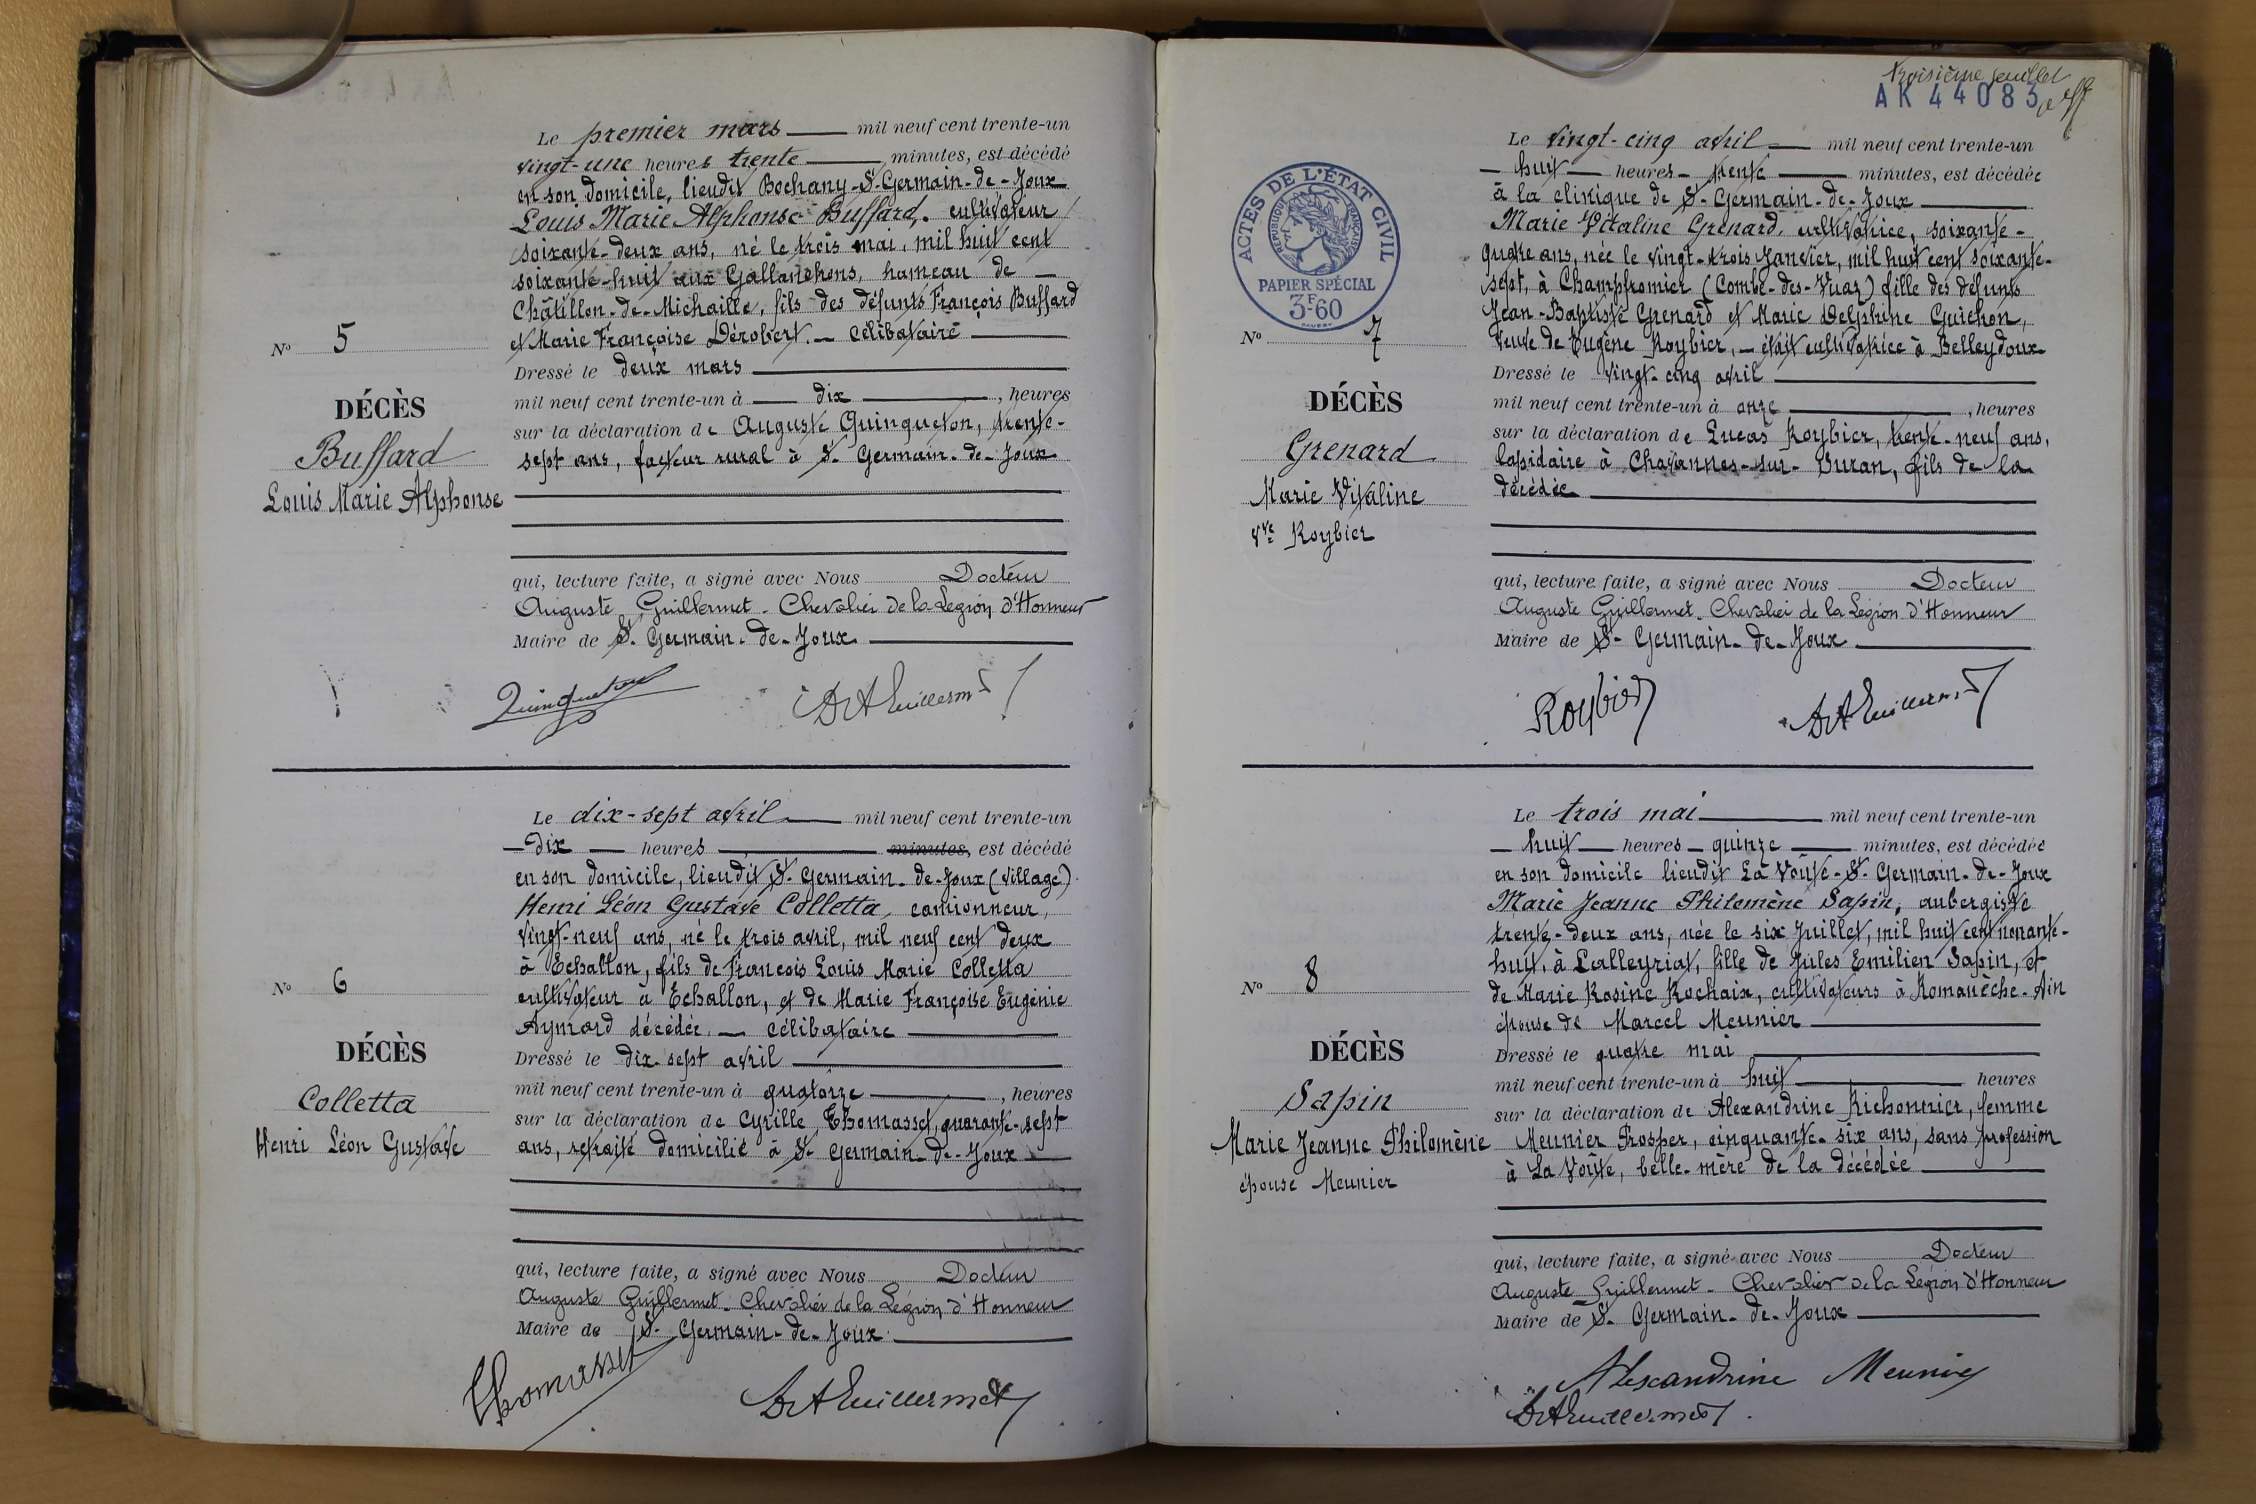 Le premier mars mil neuf cent trente-un
vingt-une heures trente minutes, est décédé
en son domicile, lieudit Bochany-St-Germain-de-Joux
Louis Marie Alphonse Buffard, cultivateur
soixante-deux ans, né le trois mai, mil huit cent
soixante-huit aux Gallanchons, hameau de
Châtillon-de-Michaille, fils des défunts François Buffard
et Marie Françoise Dérobert. - célibataire
Nº 5
Dressé le deux mars
mil neuf cent trente-un à dix, heures
sur la déclaration de Auguste Quinqueton, trente-
sept ans, facteur rural à St-Germain-de-Joux
DÉCÈS
Buffard
Louis Marie Alphonse
qui, lecture faite, a signé avec Nous Docteur
Auguste Guillermet - Chevalier de la Légion d'Honneur
Maire de St-Germain-de-Joux
Quinqueton
Dr A Guillermet
Le dix-sept avril mil neuf cent trente-un
dix heures minutes, est décédé
en son domicile, lieudit St-Germain-de-Joux (village)
Henri Léon Gustave Colletta, camionneur,
vingt-neuf ans, né le trois avril, mil neuf cent deux
à Echallon, fils de François Louis Marie Colletta
cultivateur à Echallon, et de Marie Françoise Eugénie
Aymard décédée. - célibataire
Nº 6
Dressé le dix-sept avril
mil neuf cent trente-un à quatorze, heures
sur la déclaration de Cyrille Thomasset, quarante-sept
ans, retraité domicilié à St-Germain-de-Joux
DÉCÈS
Colletta
Henri Léon Gustave
qui, lecture faite, a signé avec Nous Docteur
Auguste Guillermet - Chevalier de la Légion d'Honneur
Maire de St-Germain-de-Joux
Thomasset
Dr A Guillermet
troisième feuillet
AK 44083
ACTES DE L'ÉTAT CIVIL
RÉPUBLIQUE FRANÇAISE
PAPIER SPÉCIAL
3F-60
Le vingt-cinq avril mil neuf cent trente-un
huit heures trente minutes, est décédée
à la clinique de St-Germain-de-Joux
Marie Vitaline Grenard, cultivatrice, soixante-
quatre ans, née le vingt-trois Janvier, mil huit cent soixante-
sept, à Champfromier (Combe-des-Vuaz) fille des défunts
Jean-Baptiste Grenard et Marie Delphine Guichon,
veuve de Eugène Roybier, - était cultivatrice à Belleydoux
Nº 7
Dressé le vingt-cinq avril
mil neuf cent trente-un à onze, heures
sur la déclaration de Lucas Roybier, trente-neuf ans,
lapidaire à Chavannes-sur-Suran, fils de la
décédée
DÉCÈS
Grenard
Marie Vitaline
Vve Roybier
qui, lecture faite, a signé avec Nous Docteur
Auguste Guillermet. Chevalier de la Légion d'Honneur
Maire de St-Germain-de-Joux
Roybier
Dr A Guillermet
Le trois mai mil neuf cent trente-un
huit heures quinze minutes, est décédée
en son domicile lieudit La Voûte-St-Germain-de-Joux
Marie Jeanne Philomène Sapin, aubergiste
trente-deux ans, née le six Juillet, mil huit cent nonante-
huit, à Lalleyriat, fille de Jules Emilien Sapin, et
de Marie Rosine Rochaix, cultivateurs à Romanèche-Ain
épouse de Marcel Meunier
Nº 8
Dressé le quatre mai
mil neuf cent trente-un à huit heures
sur la déclaration de Alexandrine Richonnier, femme
Meunier Prosper, cinquante-six ans, sans profession
à La Voûte, belle-mère de la décédée
DÉCÈS
Sapin
Marie Jeanne Philomène
épouse Meunier
qui, lecture faite, a signé avec Nous Docteur
Auguste Guillermet - Chevalier de la Légion d'Honneur
Maire de St-Germain-de-Joux
Alexandrine Meunier
Dr A Guillermet